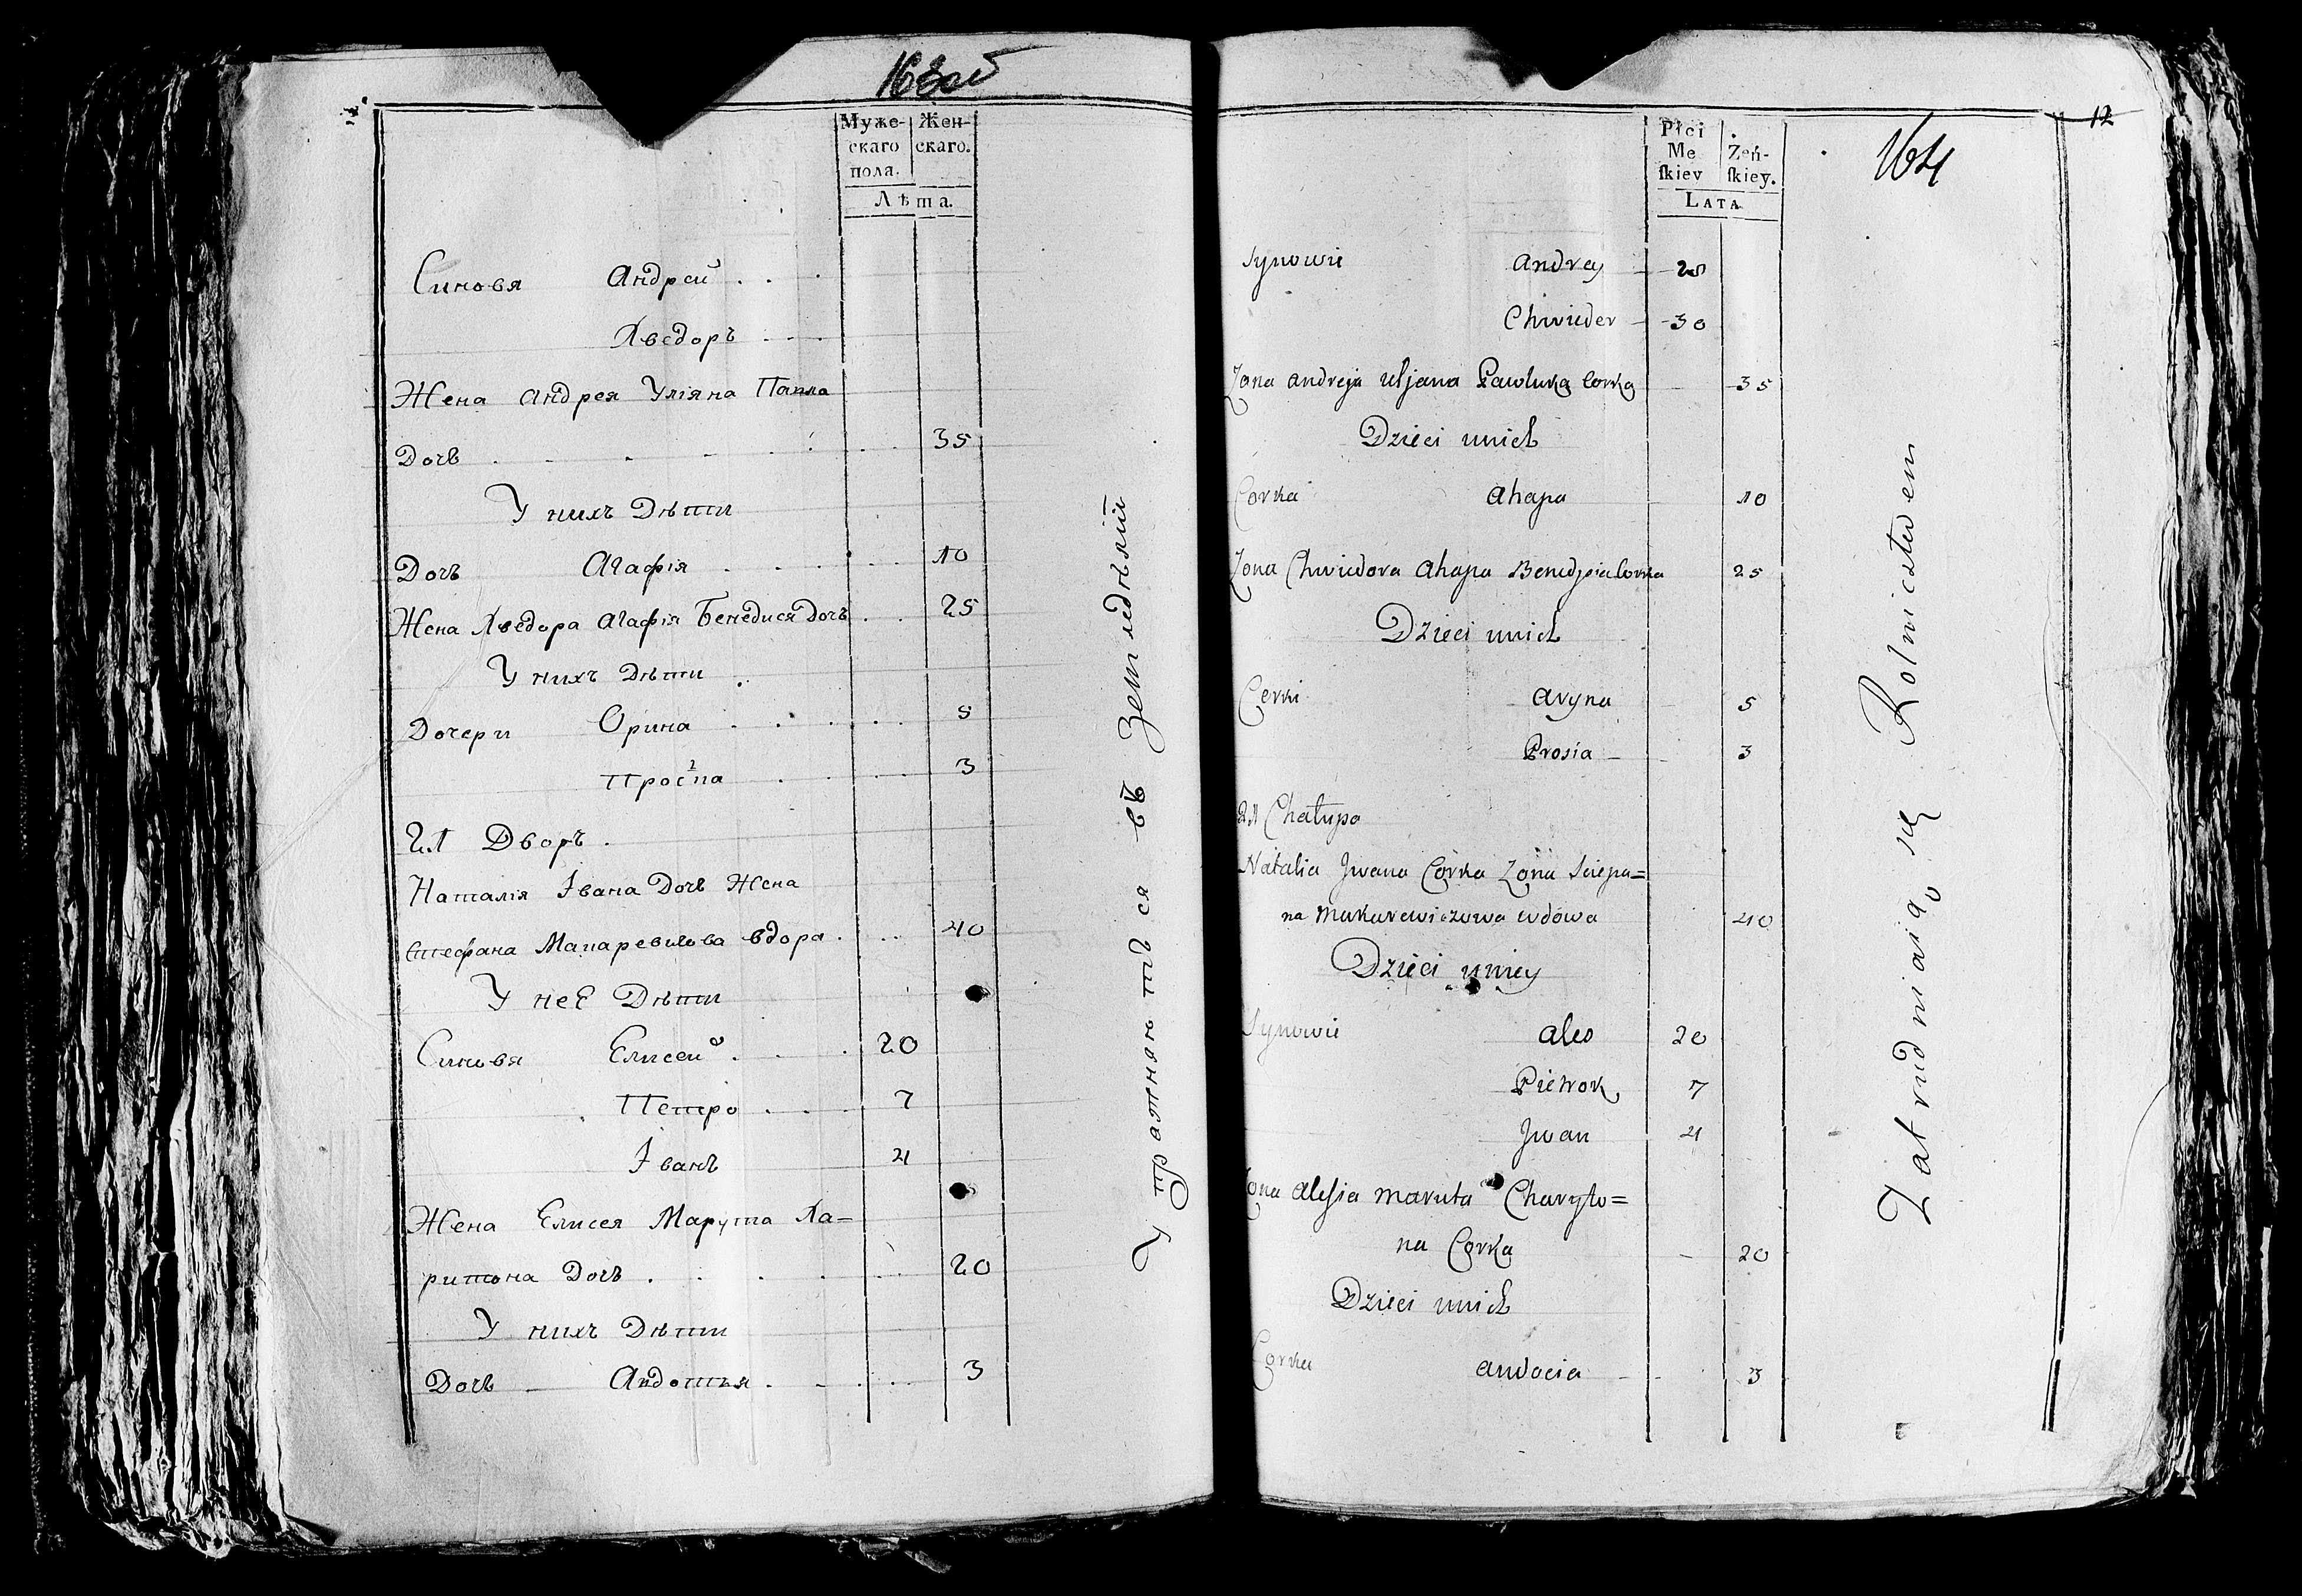 163об
Муже- Жен-
скаго скаго.
пола.
Лѣта.
Синовя Андрей
Хведоръ
Жена Андрея Уліяна Павла
Дочь 35
У нихъ Дѣти
Дочь Агафія 10
Жена Хведора Агафія Бенедися Дочь 25
У нихъ Дѣти
Дочери Орина 5
3
21 Дворъ.
Наталія Івана Дочь Жена
Стефана Макаревичова вдова 40
У неЕ Дѣти
Синовя Елисей 20
Петро 7
Іванъ 4
Жена Елисея Марута Ха=
ритона Дочь 20
У нихъ Дѣти
Дочь Авдотья 3
Упражняютъ ся въ
12
164
Płci
Mę Żeń-
ſkiey ſkiey.
LATA
Synowie Andrey 28
Chwieder 30
Zona Andreja Uljana Pawluka Corka 35
Dzieci unich
Corka Ahapa 10
Zona Chwiedora Ahapa Corka 25
Dzieci unich
Corki Aryna 5
Prosia 3
21 Chałupa
Natalia Jwana Corka Zona Sciepa=
na Makarewiczowa wdowa 40
Dzieci uniey
Synowie Ales 20
Pietrok 7
Jwan 4
Zona Alesia Maruta Charyto=
na Corka 20
Dzieci unich
Corka Awdocia 3
Zatrudniaią się Rolnictwem